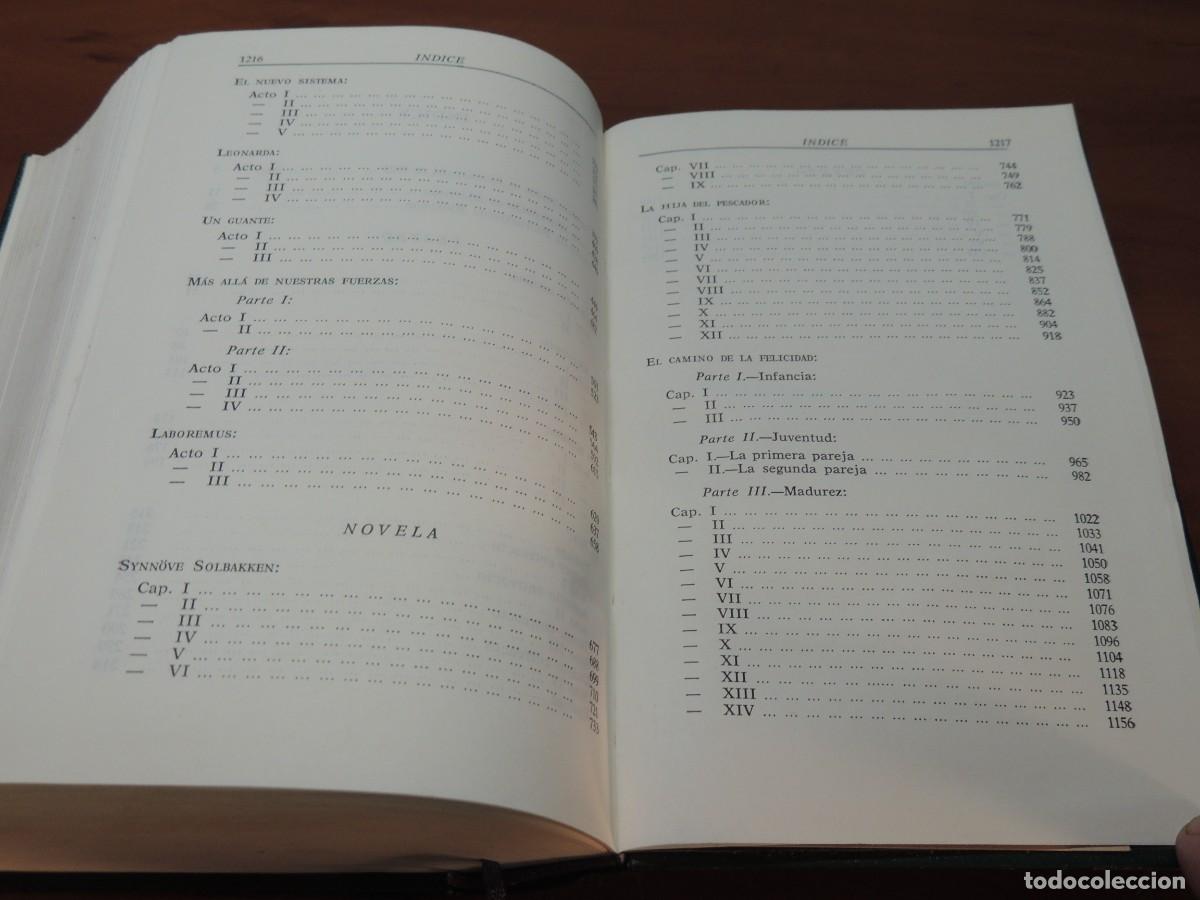 1216 INDICE
EL NUEVO SISTEMA:
Acto I ... ... ... ... ... ... ... ... ... ... ... ...
— II ... ... ... ... ... ... ... ... ... ... ... ...
— III ... ... ... ... ... ... ... ... ... ... ... ...
— IV ... ... ... ... ... ... ... ... ... ... ... ...
— V ... ... ... ... ... ... ... ... ... ... ... ...
LEONARDA:
Acto I ... ... ... ... ... ... ... ... ... ... ... ...
— II ... ... ... ... ... ... ... ... ... ... ... ...
— III ... ... ... ... ... ... ... ... ... ... ... ...
— IV ... ... ... ... ... ... ... ... ... ... ... ...
UN GUANTE:
Acto I ... ... ... ... ... ... ... ... ... ... ... ...
— II ... ... ... ... ... ... ... ... ... ... ... ...
— III ... ... ... ... ... ... ... ... ... ... ... ...
MÁS ALLÁ DE NUESTRAS FUERZAS:
Parte I:
Acto I ... ... ... ... ... ... ... ... ... ... ... ...
— II ... ... ... ... ... ... ... ... ... ... ... ...
Parte II:
Acto I ... ... ... ... ... ... ... ... ... ... ... ...
— II ... ... ... ... ... ... ... ... ... ... ... ...
— III ... ... ... ... ... ... ... ... ... ... ... ...
— IV ... ... ... ... ... ... ... ... ... ... ... ...
LABOREMUS:
Acto I ... ... ... ... ... ... ... ... ... ... ... ... 620
— II ... ... ... ... ... ... ... ... ... ... ... ... 637
— III ... ... ... ... ... ... ... ... ... ... ... ... 658
NOVELA
SYNNÖVE SOLBAKKEN:
Cap. I ... ... ... ... ... ... ... ... ... ... ... ... 677
— II ... ... ... ... ... ... ... ... ... ... ... ... 688
— III ... ... ... ... ... ... ... ... ... ... ... ... 699
— IV ... ... ... ... ... ... ... ... ... ... ... ... 710
— V ... ... ... ... ... ... ... ... ... ... ... ... 721
— VI ... ... ... ... ... ... ... ... ... ... ... ... 733
INDICE 1217
Cap. VII ... ... ... ... ... ... ... ... ... ... ... ... 744
— VIII ... ... ... ... ... ... ... ... ... ... ... ... 749
— IX ... ... ... ... ... ... ... ... ... ... ... ... 762
LA HIJA DEL PESCADOR:
Cap. I ... ... ... ... ... ... ... ... ... ... ... ... 771
— II ... ... ... ... ... ... ... ... ... ... ... ... 779
— III ... ... ... ... ... ... ... ... ... ... ... ... 788
— IV ... ... ... ... ... ... ... ... ... ... ... ... 800
— V ... ... ... ... ... ... ... ... ... ... ... ... 814
— VI ... ... ... ... ... ... ... ... ... ... ... ... 825
— VII ... ... ... ... ... ... ... ... ... ... ... ... 837
— VIII ... ... ... ... ... ... ... ... ... ... ... ... 852
— IX ... ... ... ... ... ... ... ... ... ... ... ... 864
— X ... ... ... ... ... ... ... ... ... ... ... ... 882
— XI ... ... ... ... ... ... ... ... ... ... ... ... 904
— XII ... ... ... ... ... ... ... ... ... ... ... ... 918
EL CAMINO DE LA FELICIDAD:
Parte I.—Infancia:
Cap. I ... ... ... ... ... ... ... ... ... ... ... ... 923
— II ... ... ... ... ... ... ... ... ... ... ... ... 937
— III ... ... ... ... ... ... ... ... ... ... ... ... 950
Parte II.—Juventud:
Cap. I.—La primera pareja ... ... ... ... ... ... ... 965
— II.—La segunda pareja ... ... ... ... ... ... ... 982
Parte III.—Madurez:
Cap. I ... ... ... ... ... ... ... ... ... ... ... ... 1022
— II ... ... ... ... ... ... ... ... ... ... ... ... 1033
— III ... ... ... ... ... ... ... ... ... ... ... ... 1041
— IV ... ... ... ... ... ... ... ... ... ... ... ... 1050
— V ... ... ... ... ... ... ... ... ... ... ... ... 1058
— VI ... ... ... ... ... ... ... ... ... ... ... ... 1071
— VII ... ... ... ... ... ... ... ... ... ... ... ... 1076
— VIII ... ... ... ... ... ... ... ... ... ... ... ... 1083
— IX ... ... ... ... ... ... ... ... ... ... ... ... 1096
— X ... ... ... ... ... ... ... ... ... ... ... ... 1104
— XI ... ... ... ... ... ... ... ... ... ... ... ... 1118
— XII ... ... ... ... ... ... ... ... ... ... ... ... 1135
— XIII ... ... ... ... ... ... ... ... ... ... ... ... 1148
— XIV ... ... ... ... ... ... ... ... ... ... ... ... 1156
todocoleccion